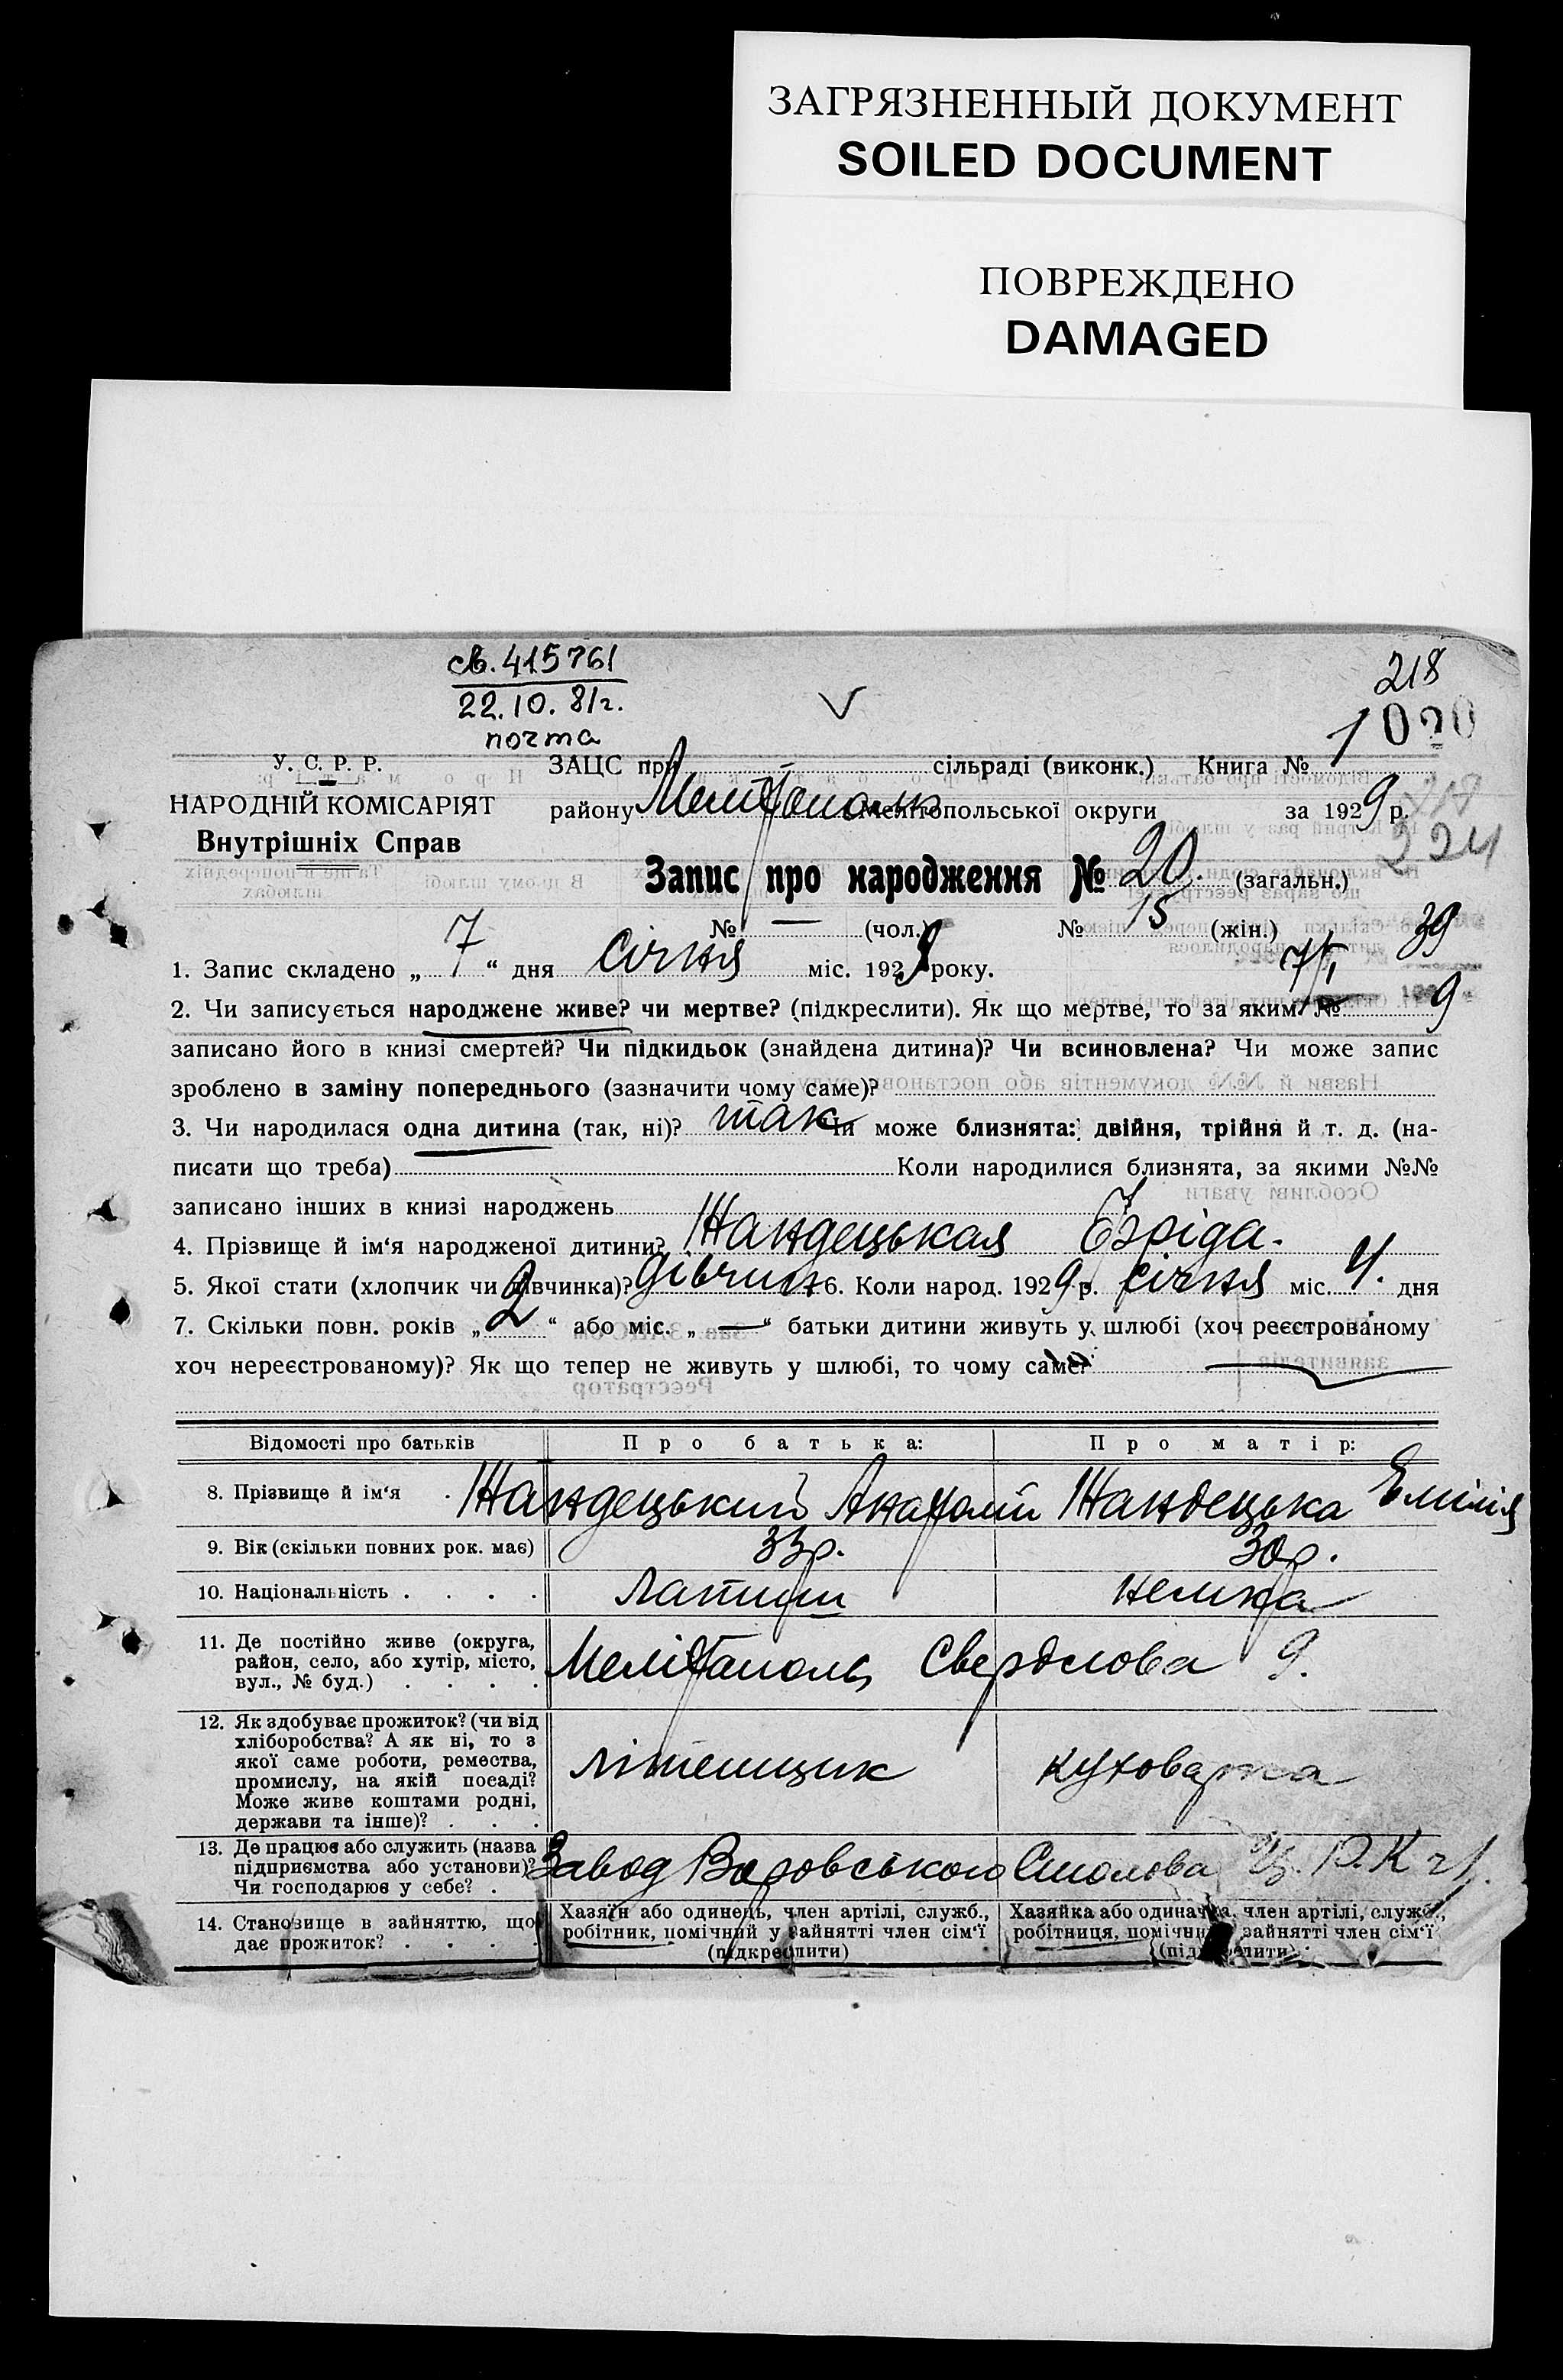 ЗАГРЯЗНЕННЫЙ ДОКУМЕНТ
SOILED DOCUMENT
ПОВРЕЖДЕНО
DAMAGED
св. 415761
22.10.81г.
почта
218
1020
У. С. Р. Р.
НАРОДНІЙ КОМІСАРІЯТ
Внутрішніх Справ
ЗАЦС при сільраді (виконк.) Книга №
району Мелітополь Мелітопольської округи за 1929 р.
217
224
Запис про народження № 20. (загальн.)
№ — (чол.) № 15 (жін.)
39
1. Запис складено „ 7 “ дня січня міс. 1929 року.
7/I
2. Чи записується народжене живе? чи мертве? (підкреслити). Як що мертве, то за яким № 9
записано його в книзі смертей? Чи підкидьок (знайдена дитина)? Чи всиновлена? Чи може запис
зроблено в заміну попереднього (зазначити чому саме)?
3. Чи народилася одна дитина (так, ні)? так Чи може близнята: двійня, трійня й т. д. (на-
писати що треба) Коли народилися близнята, за якими №№
записано інших в книзі народжень
4. Прізвище й ім‘я народженої дитини? Жандецькая
5. Якої стати (хлопчик чи дівчинка)? дівчин 6. Коли народ. 1929 р. січня міс. 4. дня
7. Скільки повн. років „ 2 “ або міс. „ — “ батьки дитини живуть у шлюбі (хоч реєстрованому
хоч нереєстрованому)? Як що тепер не живуть у шлюбі, то чому саме?
Відомості про батьків Про батька: Про матір:
8. Прізвище й ім‘я . Жандецький Анатолій Жандецька Емілія
9. Вік (скільки повних рок. має) 33р. 30р.
10. Національність . . . . Латиш немка
11. Де постійно живе (округа,
район, село, або хутір, місто,
вул., № буд.) . . . .
Мелітополь Свердлова 9.
12. Як здобуває прожиток? (чи від
хліборобства? А як ні, то з
якої саме роботи, ремества,
промислу, на якій посаді?
Може живе коштами родні,
держави та інше)? . . .
літейщик кухова
13. Де працює або служить (назва
підприємства або установи)?
Чи господарює у себе? .
Завод Воровського Столова Ц.Р.К
14. Становище в зайняттю, що
дає прожиток? . . . .
Хазяїн або одинець, член артілі, служб.,
робітник, помічний у зайнятті член сім‘ї
(підкреслити)
Хазяйка або одиначка, член артілі, служб.,
робітниця, помічни зайнятті член сім‘ї
(підкреслити)